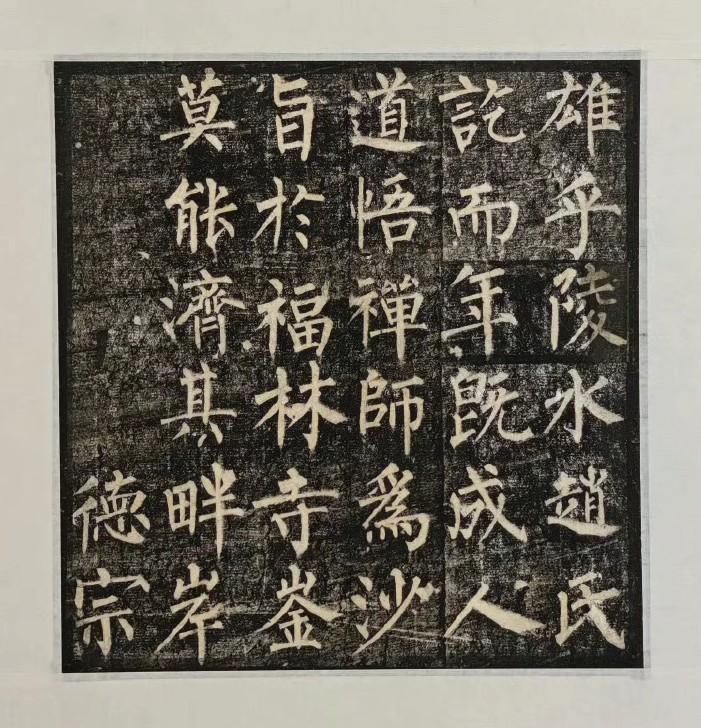 雄乎陵水趙氏
訖而年既成人
道悟禪師為沙
旨於福林寺崟
莫能濟其畔岸
德宗